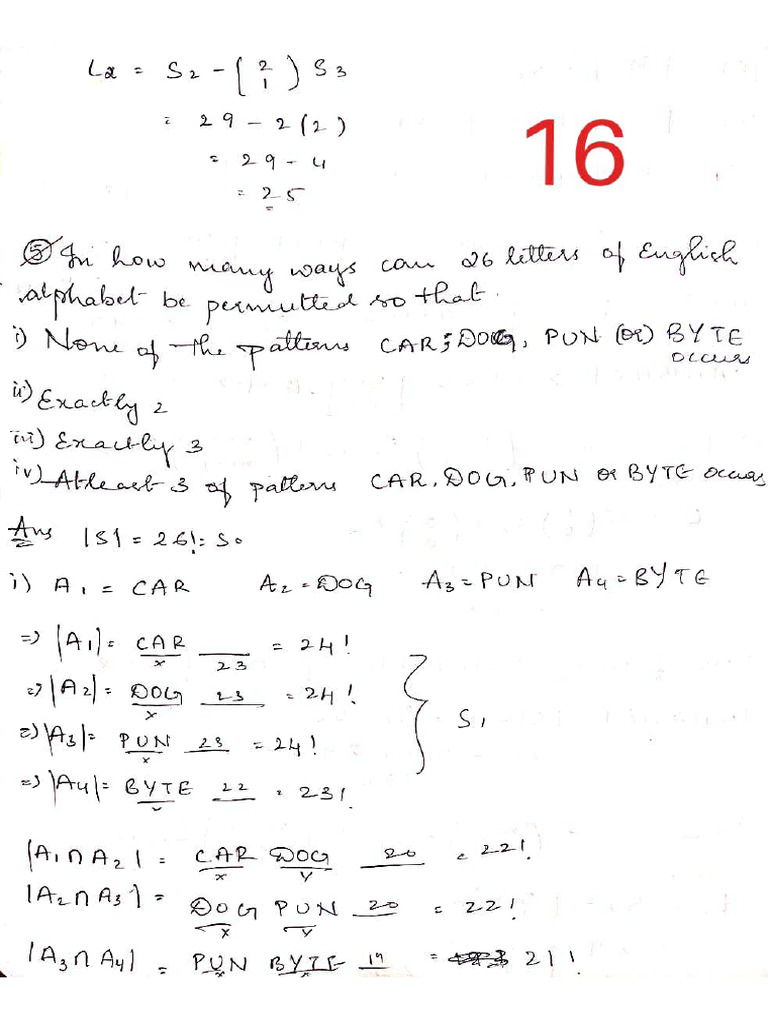 L2 = S2 - (2 1) S3
= 29 - 2(2)
= 29 - 4
= 25
16
⑤ In how many ways can 26 letters of English
alphabet be permutted so that.
i) None of the patterns CAR, DOG, PUN (or) BYTE
occurs
ii) Exactly 2
iii) Exactly 3
iv) Atleast 3 of pattern CAR, DOG, PUN or BYTE occurs
Ans |S| = 26! = S0
i) A1 = CAR A2 = DOG A3 = PUN A4 = BYTE
=> |A1| = CAR ___ = 24!
x 23
=> |A2| = DOG 23 = 24!
x
=> |A3| = PUN 23 = 24!
x
S1
=> |A4| = BYTE 22 = 23!
|A1 ∩ A2| = CAR DOG 20 = 22!
x y
|A2 ∩ A3| = DOG PUN 20 = 22!
x y
|A3 ∩ A4| = PUN BYTE 19 = 21!
x x